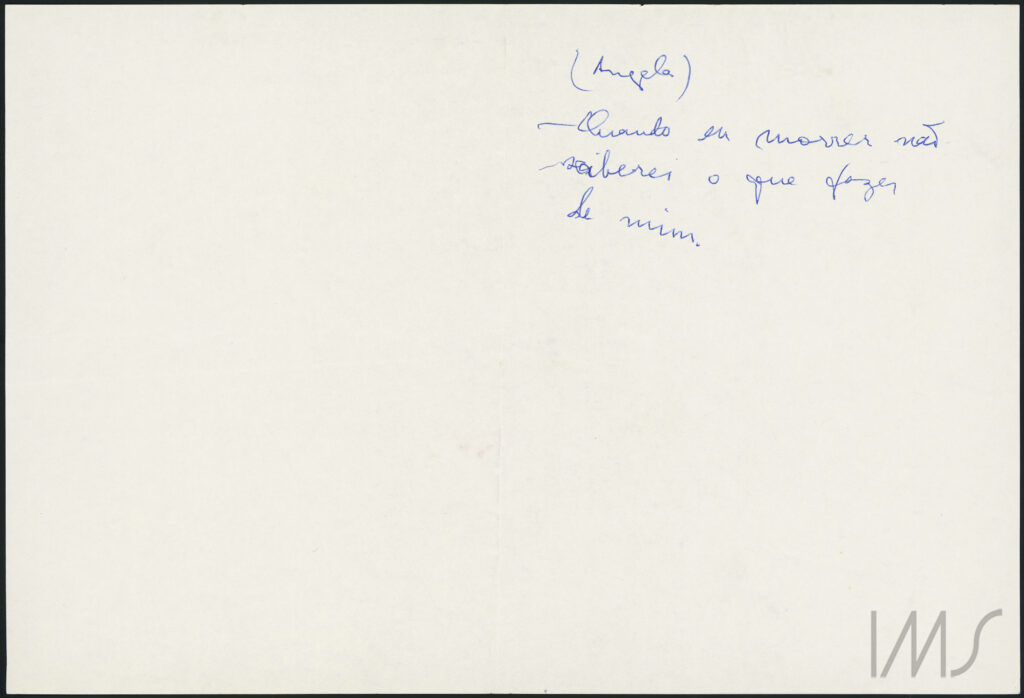 (Angela)
— Quando eu morrer não
saiberei o que fazer
de mim.
IMS